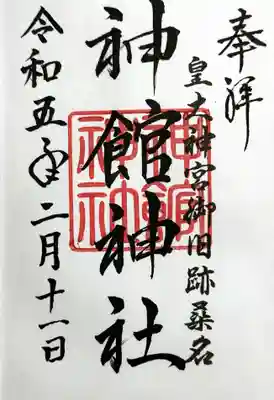 奉拝
皇大神宮御旧跡桑名
神館神社
令和五年二月十一日